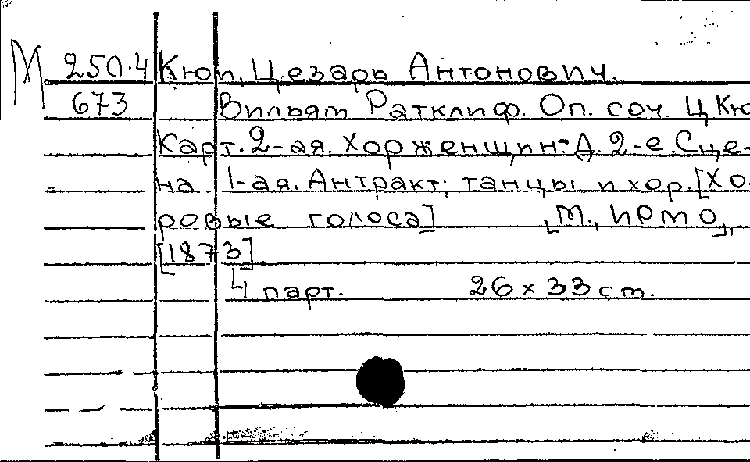 М 250.4 Кюи, Цезарь Антонович.
673 Вильям Ратклиф. Оп. соч. Ц Кю
Карт. 2-ая. Хор женщин. Д. 2-е. Сце-
на 1-ая. Антракт; танцы и хор. [Хо-
ровые голоса] [М., ИРМО],
[1873]
4 парт. 26 х 33 cm.